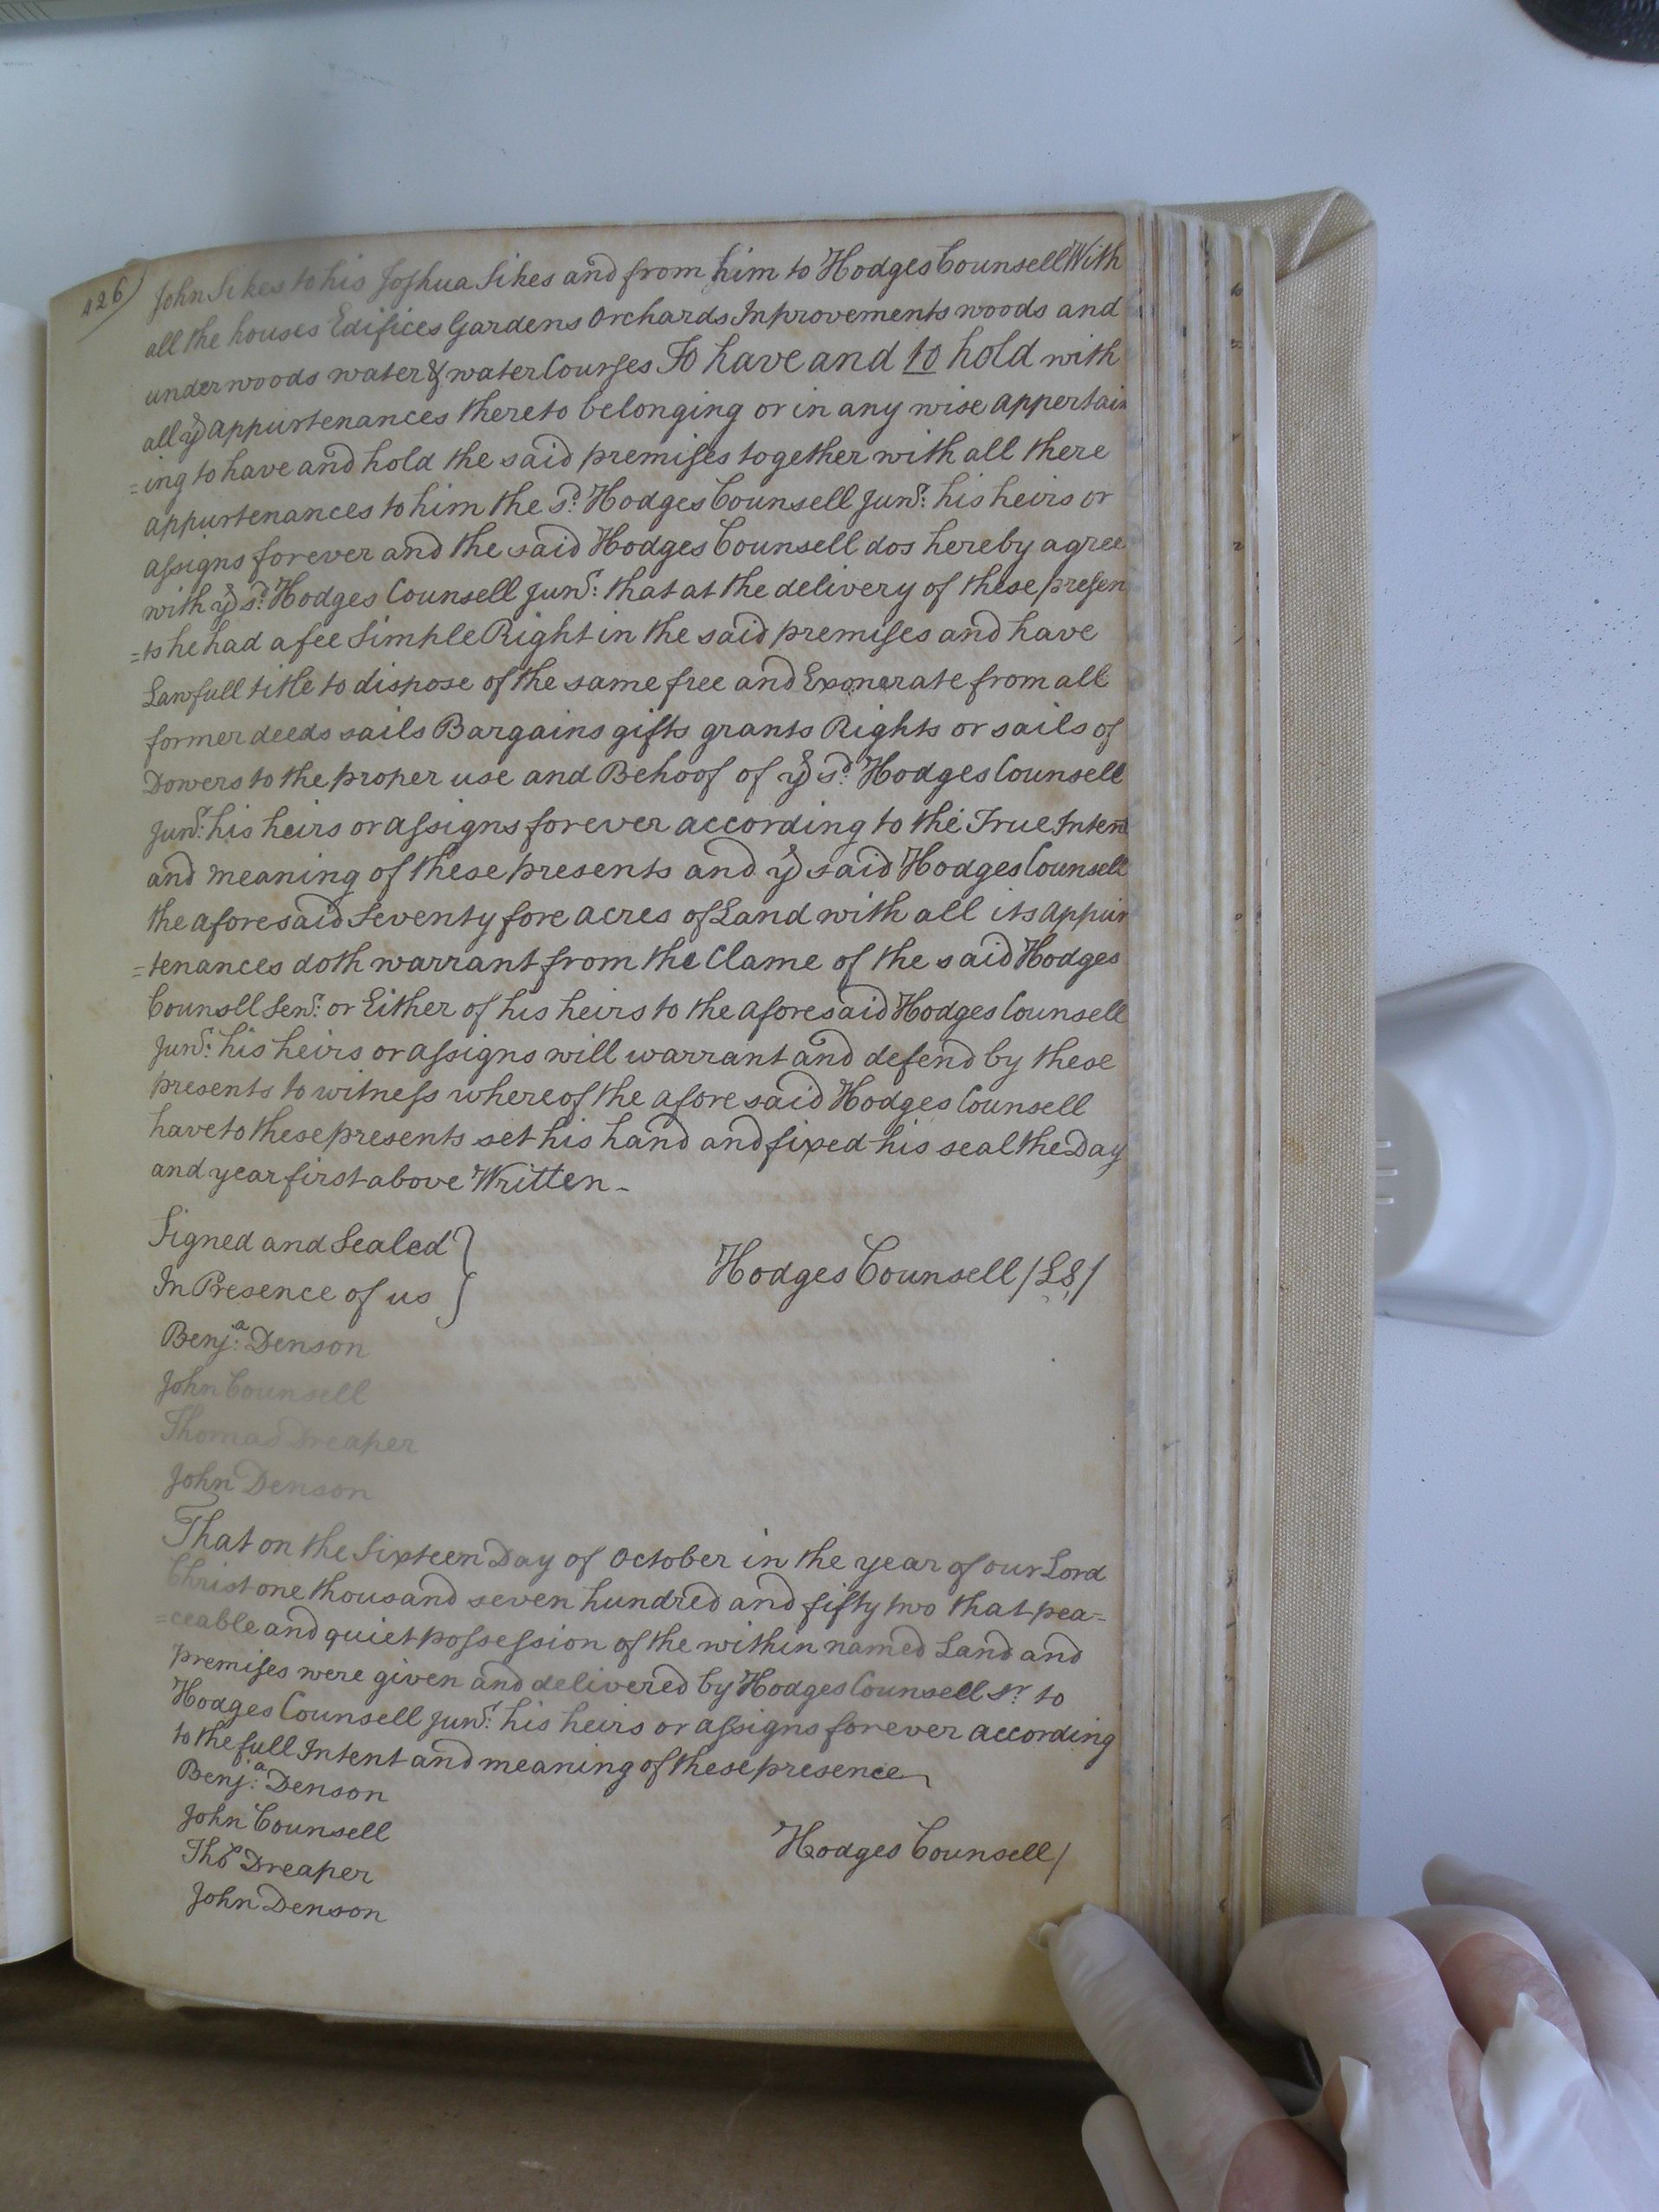 426)
John Sikes to his Joshua Sikes and from him to Hodges Counsell With
all the houses Edifices Gardens Orchards Inprovements woods and
underwoods water & water Courses To have and to hold with
all ye appurtenances thereto belonging or in any wise appertain
=ing to have and hold the said premises together with all there
appurtenances to him the sd. Hodges Counsell Junr: his heirs or
assigns forever and the said Hodges Counsell dos hereby agree
with ye sd. Hodges Counsell Junr: that at the delivery of these presen
=ts he had a fee Simple Right in the said premises and have
Lawfull title to dispose of the same free and Exonerate from all
former deeds sails Bargains gifts grants Rights or sails of
Dowers to the proper use and Behoof of ye sd. Hodges Counsell
Junr: his heirs or assigns forever according to the True Intent
and meaning of these presents and ye said Hodges Counsell
the aforesaid Seventy fore acres of Land with all its appur
=tenances doth warrant from the Clame of the said Hodges
Counsll Senr: or Either of his heirs to the aforesaid Hodges Counsell
Junr: his heirs or assigns will warrant and defend by these
presents to witness whereof the afore said Hodges Counsell
have to these presents set his hand and fixed his seal the Day
and year first above Written -
Signed and Sealed }
In Presence of us }
Hodges Counsell /LS/
Benja: Denson
John Counsell
Thomas Dreaper
John Denson
That on the Sixteen Day of October in the year of our Lord
Christ one thousand seven hundred and fifty two that pea=
=ceable and quiet possession of the within named Land and
premises were given and delivered by Hodges Counsell Sr to
Hodges Counsell Junr: his heirs or assigns forever according
to the full Intent and meaning of these presence
Benja: Denson
John Counsell
Thos Dreaper
John Denson
Hodges Counsell/